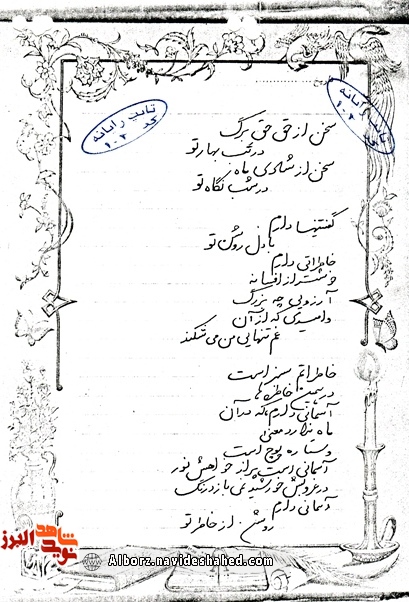 تایپ رایانه
کد ۱۰۲
تایپ رایانه
کد ۱۰۲
سخن از هق هق برگ
در تب بهار تو
سخن از شادی ماه
در شب نگاه تو
گفتنیها دارم
با دل روشن تو
خاطراتی دارم
خوشتر از افسانه
آرزویی چه بزرگ
و امیدی که از آن
غم تنهایی من می شکند
خاطراتم سبز است
در پس خاطره ها
آسمانی دارم که در آن
ماه ندارد معنی
و ستاره پوچ است
آسمانی است پر از خواهش نور
در غروبش خورشیدی باز درنگ
آسمانی دارم
روشن از خاطر تو
شاهد
نوید
البرز
Alborz.navideshahed.com